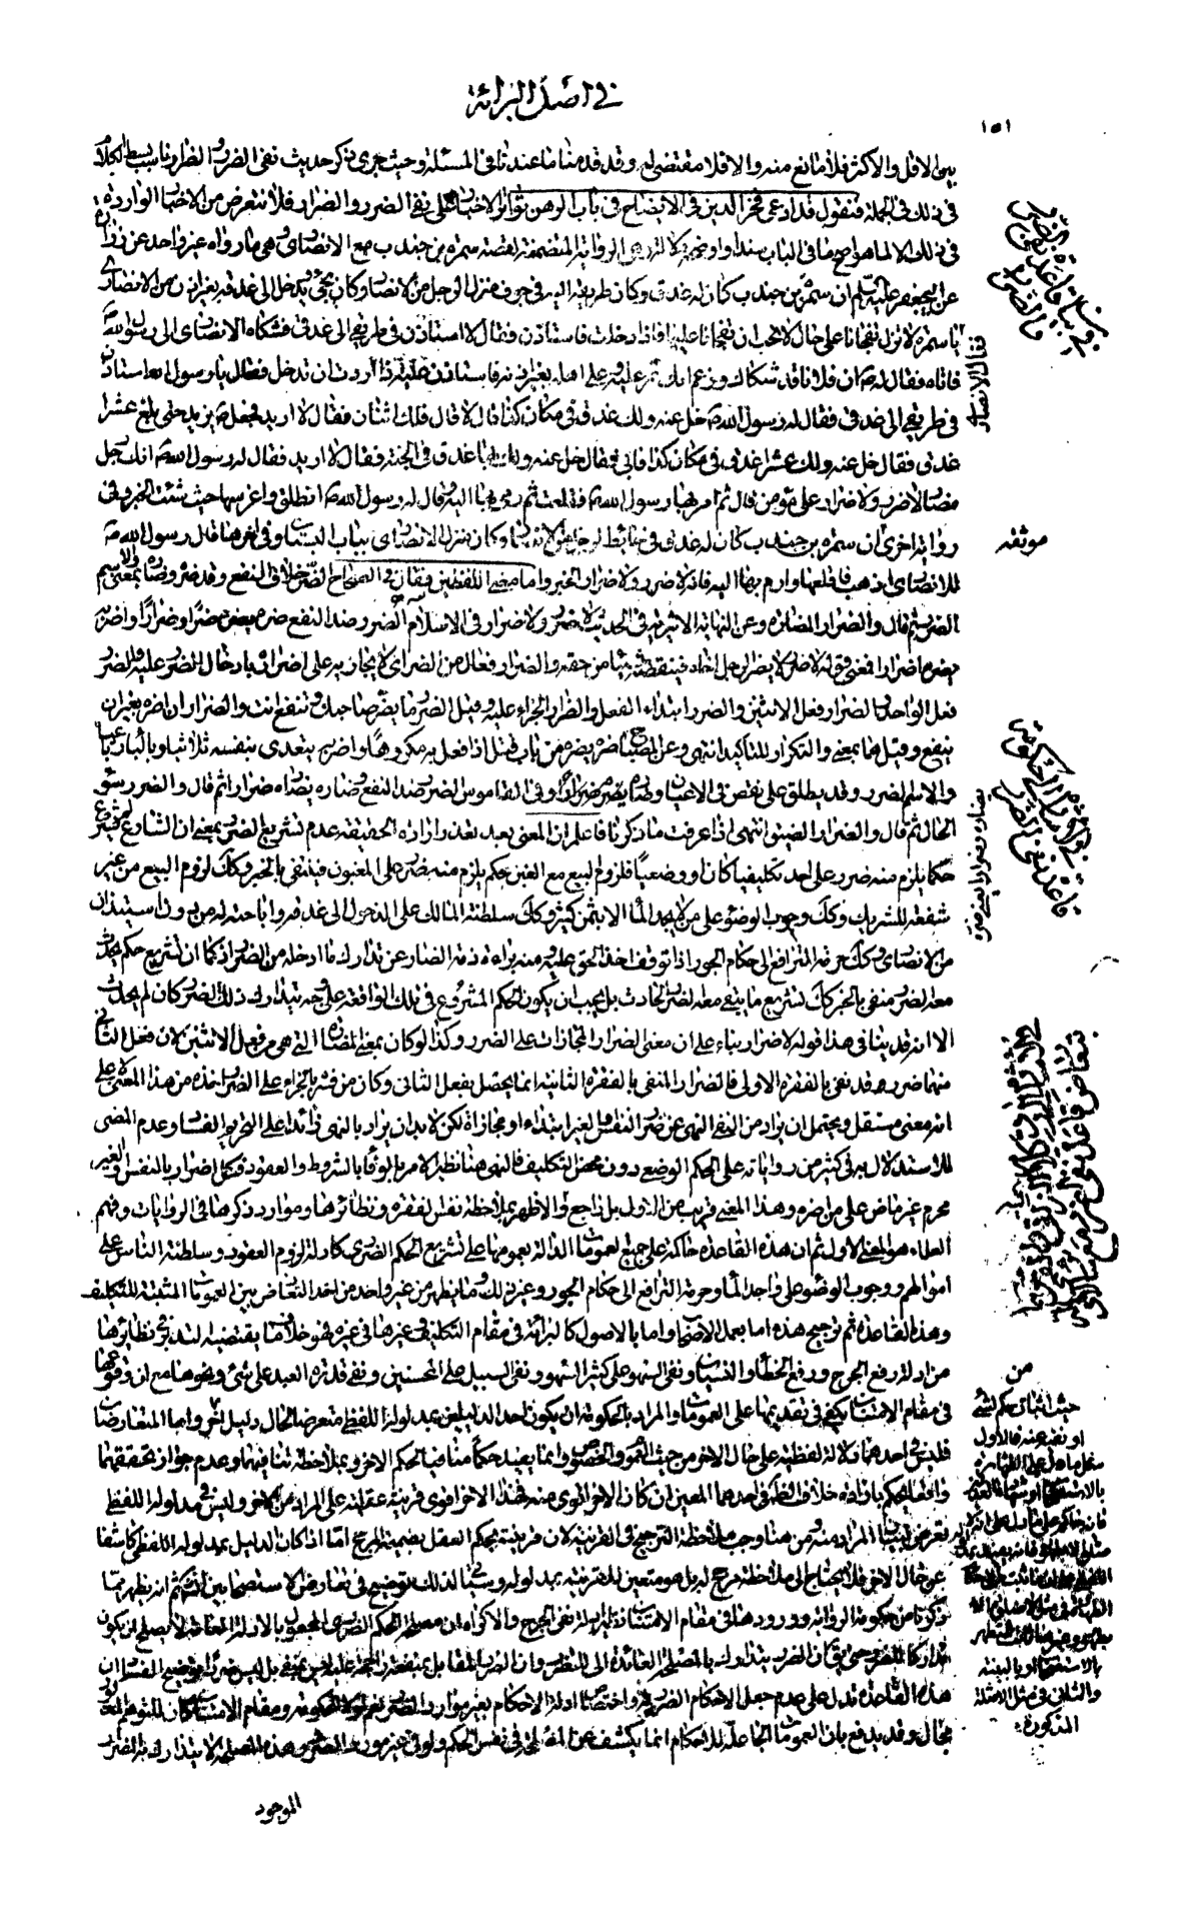 في اصل البرائة
١٥١
بين الاقل والاكثر فلا مانع منه والا فلا مقتضى له وقد قدمنا ما عندنا في المسئلة وحيث جرى ذكر حديث نفي الضرر والضرار ناسب بسط الكلام
في ذلك في الجملة فنقول قد ادعى فخر الدين في الايضاح في باب الرهن تواتر الاخبار على نفي الضرر والضرار فلا نتعرض من الاخبار الواردة
في ذلك الا لما هو اصح ما في الباب سندا واوضحه دلالة وهي الرواية المتضمنة لقصة سمرة بن جندب مع الانصاري وهي ما رواه غير واحد عن زرارة
عن ابي جعفر عليه السلم ان سمرة بن جندب كان له عذق وكان طريقه اليه في جوف منزل لرجل من الانصار وكان يجئ ويدخل الى عذقه بغير اذن من الانصاري
يا سمرة لا تزال تفجأنا على حال لا نحب ان تفجأنا عليه فاذا دخلت فاستأذن فقال لا استأذن في طريقي الى عذقي فشكاه الانصاري الى رسول الله ص
فاتاه فقال له ان فلانا قد شكاك وزعم انك تمر عليه وعلى اهله بغير اذنه فاستأذن عليه اذا اردت ان تدخل فقال يا رسول الله استأذن
في طريقي الى عذقي فقال له رسول الله ص خل عنه ولك عذق في مكان كذا قال لا قال فلك اثنان فقال لا اريد فجعل ص يزيد حتى بلغ عشر
عذق فقال خل عنه ولك عشر اعذق في مكان كذا فابى فقال خل عنه ولك بها عذق في الجنة فقال لا اريد فقال له رسول الله ص انك رجل
مضار لا ضرر ولا ضرار على مؤمن قال ثم امر بها رسول الله ص فقلعت ثم رمى بها اليه وقال له رسول الله ص انطلق واغرسها حيث شئت الخبر وفي
رواية اخرى ان سمرة بن جندب كان له عذق في حائط لرجل من الانصار وكان منزل الانصاري بباب البستان وفي اخرها قال رسول الله ص
للانصاري اذهب فاقلعها وارم بها اليه فانه لا ضرر ولا ضرار الخبر واما معنى اللفظين فقال في الصحاح الضر خلاف النفع وقد ضره وضاره بمعنى والاسم
الضرر ثم قال والضرار المضارة وعن النهاية الاثيرية في الحديث لا ضرر ولا ضرار في الاسلام الضرر ضد النفع ضره يضره ضرا وضرارا واضر به
يضره اضرارا فمعنى قوله لا ضرر لا يضر الرجل اخاه فينقصه شيئا من حقه والضرار فعال من الضر اي لا يجازيه على اضراره بادخال الضرر عليه والضرر
فعل الواحد والضرار فعل الاثنين والضرر ابتداء الفعل والضرار الجزاء عليه وقيل الضرر ما يضر صاحبك وتنتفع انت والضرار ان تضره بغير ان
ينتفع وقيل هما بمعنى والتكرار للتأكيد انتهى وعن المصباح ضره يضره من باب قتل اذا فعل به مكروها واضر به يتعدى بنفسه ثلاثيا وبالباء رباعيا
والاسم الضرر وقد يطلق على نقص في الاعيان وفي القاموس الضر ضد النفع وضاره يضاره ضرارا ثم قال والضرر سوء
الحال ثم قال والضرار الضيق انتهى اذا عرفت ما ذكرنا فاعلم ان المعنى بعد تعذر ارادة الحقيقة عدم تشريع الضرر بمعنى ان الشارع لم يشرع
حكما يلزم منه ضرر على احد تكليفيا كان او وضعيا فلزوم البيع مع الغبن حكم يلزم منه ضرر على المغبون فينتفي بالخبر وكك لزوم البيع من غير
شفعة للشريك وكك وجوب الوضوء على من لا يجد الماء الا بثمن كثير وكك سلطنة المالك على الدخول الى عذقه واباحته له من دون استيذان
من الانصاري وكك حرمة الترافع الى حكام الجور اذا توقف اخذ الحق عليه ومنه براءة ذمة الضار عن تدارك ما ادخله من الضرر اذ كما ان تشريع حكم يحدث
معه الضرر منفي بالخبر كك تشريع ما يبقى معه الضرر الحادث بل يجب ان يكون الحكم المشروع في تلك الواقعة على وجه يتدارك ذلك الضرر كان لم يحدث
الا انه قد ينافي هذا قوله لا ضرار بناء على ان معنى الضرار المجازات على الضرر وكذا لو كان بمعنى المضارة التي هي من فعل الاثنين لان فعل الثاني
منهما ضرر قد نفي بالفقرة الاولى فالضرار المنفي بالفقرة الثانية انما يحصل بفعل الثاني وكان من فسره بالجزاء على الضرر اخذه من هذا المعنى لا على
انه معنى مستقل ويحتمل ان يراد من النفي النهي عن ضرر النفس او الغير ابتداء او مجازاة لكن لا بد ان يراد بالنهي زائدا على التحريم الفساد وعدم المضي
للاستدلال به في كثير من رواياته على الحكم الوضعي دون محض التكليف فالنهي هنا نظير الامر بالوفاء بالشروط والعقود فكل اضرار بالنفس والغير
محرم غير ماض على من اضره وهذا المعنى قريب من الاول بل راجع اليه والاظهر بملاحظة نفس الفقرة ونظائرها وموارد ذكرها في الروايات وفهم
العلماء هو المعنى الاول ثم ان هذه القاعدة حاكمة على جميع العمومات الدالة بعمومها على تشريع الحكم الضرري كادلة لزوم العقود وسلطنة الناس على
اموالهم ووجوب الوضوء على واجد الماء وحرمة الترافع الى حكام الجور وغير ذلك وما يظهر من غير واحد من اخذ التعارض بين العمومات المثبتة للتكليف
وهذه القاعدة ثم ترجيح هذه اما بعمل الاصحاب واما بالاصول كالبراءة في مقام التكليف وغيرها في غيره فهو خلاف ما يقتضيه التدبر في نظائرها
من ادلة رفع الحرج ورفع الخطأ والنسيان ونفي السهو على كثير السهو ونفي السبيل على المحسنين ونفي قدرة العبد على شئ ونحوها مع ان وقوعها
في مقام الامتنان يكفي في تقديمها على العمومات والمراد بالحكومة ان يكون احد الدليلين بمدلوله اللفظي متعرضا لحال دليل اخر واما المتعارضان
فليس في احدهما دلالة لفظية على حال الاخر من حيث العموم والخصوص وانما يفيد حكما منافيا لحكم الاخر وبملاحظة تنافيهما وعدم جواز تحققهما
واقعا يحكم بارادة خلاف الظاهر في احدهما المعين ان كان الاخر اقوى منه فهذا الاخر الاقوى قرينة عقلية على المراد من الاخر وليس في مدلوله اللفظي
تعرض لبيان المراد منه ومن هنا وجب ملاحظة الترجيح في القرينة لان قرينيته بحكم العقل بضميمة المرجح اما اذا كان الدليل بمدلوله اللفظي كاشفا
عن حال الاخر فلا يحتاج الى ملاحظة مرجح له بل هو متعين للقرينية بمدلوله وسيأتي لذلك توضيح في تعارض الاستصحابين ثم انه يظهر مما
ذكرنا من حكومة الرواية وورودها في مقام الامتنان نظير ادلة نفي الحرج والاكراه ان مصلحة الحكم الضرري المجعول بالادلة العامة لا يصلح ان يكون
تداركا للضرر حتى يقال ان الضرر يتدارك بالمصلحة العائدة الى المتضرر وان الضرر المقابل بمنفعة راجحة عليه ليس بمنفي بل ليس ضررا توضيح الفساد ان
هذه القاعدة تدل على عدم جعل الاحكام الضررية واختصاص ادلة الاحكام بغير موارد الضرر نعم لولا الحكومة ومقام الامتنان كان للتوهم المذكور
مجال وقد يدفع بان العمومات الجاعلة للاحكام انما يكشف عن المصلحة في نفس الحكم ولو في غير مورد الضرر وهذه المصلحة لا يتدارك بها الضرر
الموجود
فقال الانصاري
موثقة
من
حيث اثبات حكم لشئ
او نفيه عنه فالاول
مثل ما دل على الطهارة
بالاستصحاب
والثاني في مثل الامثلة
المذكورة